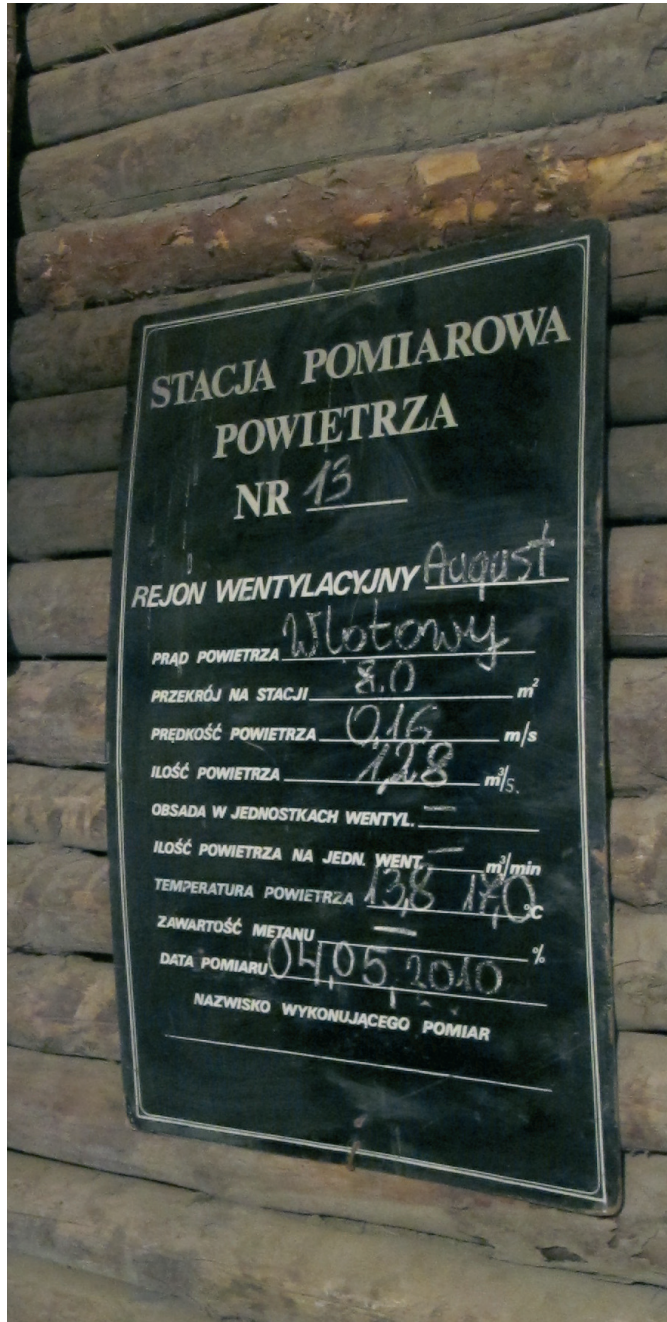 STACJA POMIAROWA
POWIETRZA
NR 13
REJON WENTYLACYJNY August
PRĄD POWIETRZA Wlotowy
PRZEKRÓJ NA STACJI 8.0 m²
PRĘDKOŚĆ POWIETRZA 0,16 m/s
ILOŚĆ POWIETRZA 1,28 m³/s.
OBSADA W JEDNOSTKACH WENTYL. —
ILOŚĆ POWIETRZA NA JEDN. WENT. — m³/min
TEMPERATURA POWIETRZA 13,8 17,0 °C
ZAWARTOŚĆ METANU — %
DATA POMIARU 04,05,2010
NAZWISKO WYKONUJĄCEGO POMIAR